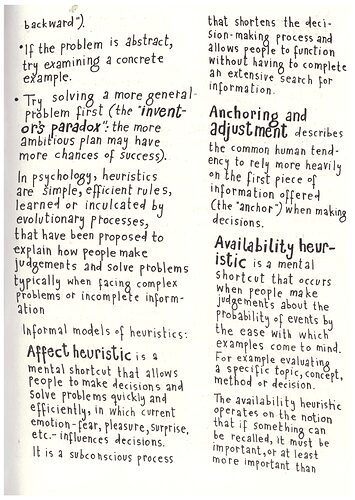 backward").
•If the problem is abstract,
try examining a concrete
example.
• Try solving a more general
problem first (the "invent-
or's paradox": the more
ambitious plan may have
more chances of success).
In psychology, heuristics
are simple, efficient rules,
learned or inculcated by
evolutionary processes,
that have been proposed to
explain how people make
judgements and solve problems
typically when facing complex
problems or incomplete inform-
ation
Informal models of heuristics:
Affect heuristic is a
mental shortcut that allows
people to make decisions and
Solve problems quickly and
efficiently, in which current
emotion-fear, pleasure, surprise,
etc.- influences decisions.
It is a subconscious process
that shortens the deci-
sion-making process and
allows people to function
without having to complete
an extensive search for
information.
Anchoring and
adjustment describes
the common human tend-
ency to rely more heavily
on the first piece of
information offered
(the "anchor") when making
decisions.
Availability heur-
istic is a mental
shortcut that occurs
when people make
judgements about the
probability of events by
the ease with which
examples come to mind.
For example evaluating
a specific topic, concept,
method or decision.
The availability heuristic
operates on the notion
that if something can
be recalled, it must be
important, or at least
more important than